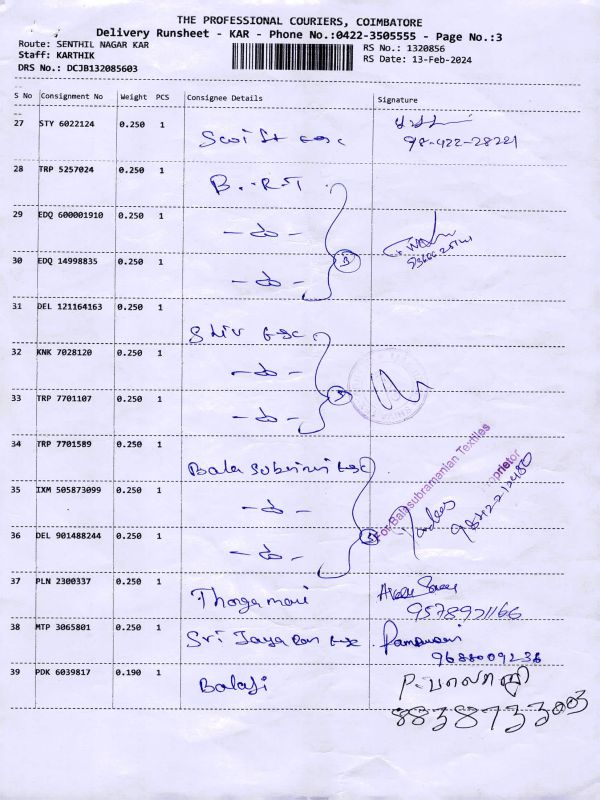 THE PROFESSIONAL COURIERS, COIMBATORE
Delivery Runsheet - KAR - Phone No.:0422-3505555 - Page No.:3
Route: SENTHIL NAGAR KAR
RS No.: 1320856
Staff: KARTHIK
RS Date: 13-Feb-2024
DRS No.: DCJB132085603
S No Consignment No Weight PCS Consignee Details Signature
27 STY 6022124 0.250 1
98-422-28221
28 TRP 5257024 0.250 1 B.R.T
29 EDQ 600001910 0.250 1 - do -
30 EDQ 14998835 0.250 1 - do -
31 DEL 121164163 0.250 1 Shiv
32 KNK 7028120 0.250 1 - do -
33 TRP 7701107 0.250 1 - do -
34 TRP 7701589 0.250 1
For Balasubramanian Textiles
Proprietor
35 IXM 505873099 0.250 1 - do -
9842212480
36 DEL 901488244 0.250 1 - do -
37 PLN 2300337 0.250 1
9578921166
38 MTP 3065801 0.250 1 Sri Jaya
9688009236
39 PDK 6039817 0.190 1 Balaji P. பாலாஜி
8838733003